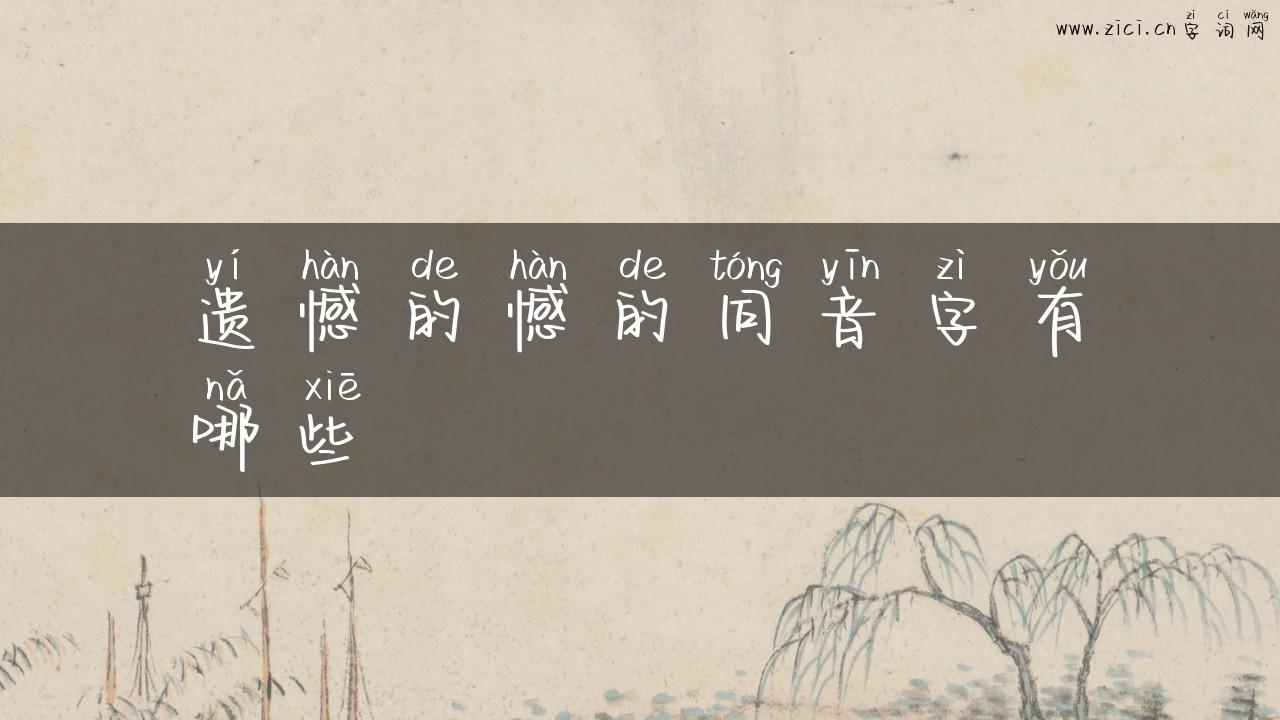 zì cí wǎng
www.zici.cn字词网
yí hàn de hàn de tóng yīn zì yǒu
遗憾的憾的同音字有
nǎ xiē
哪些